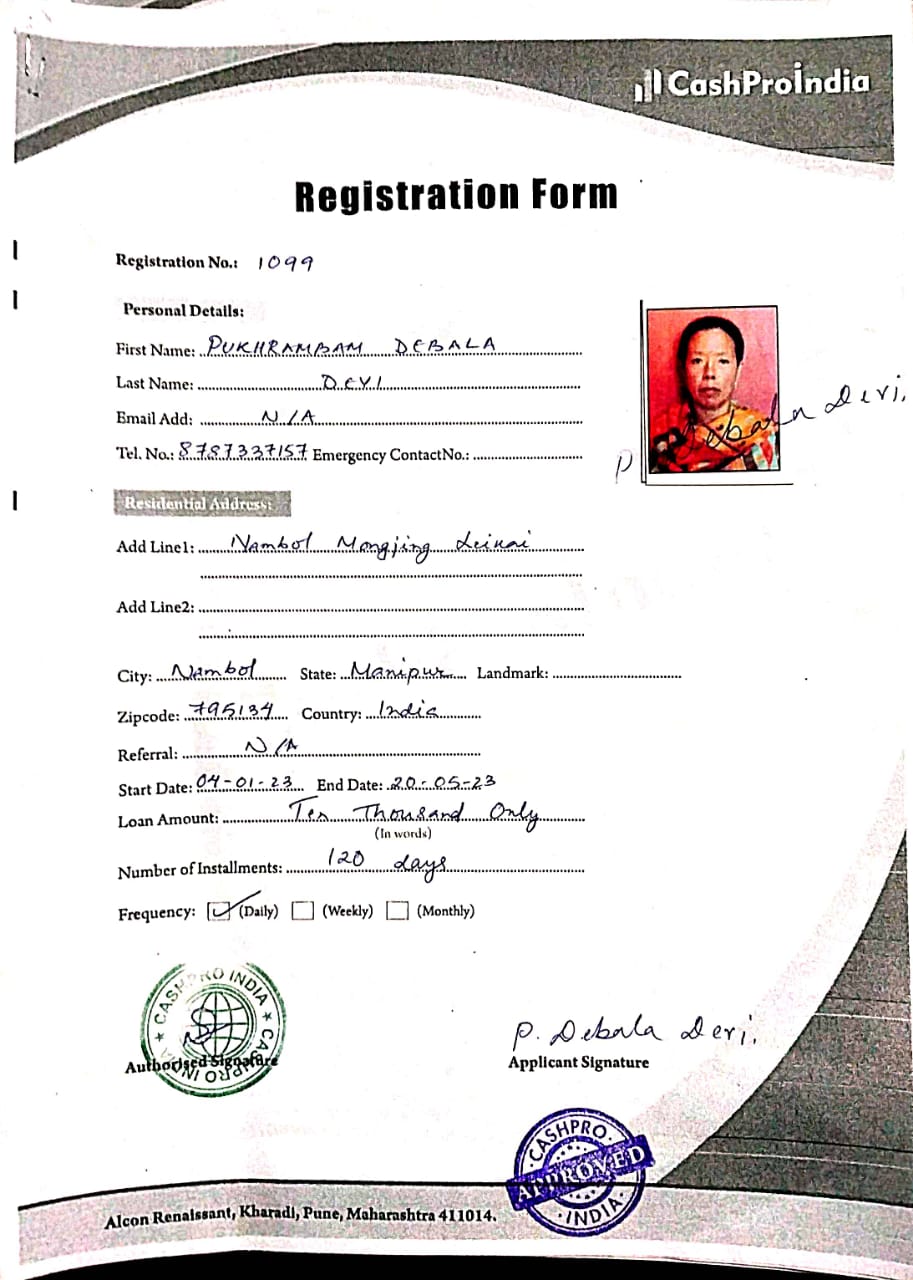 CashProIndia
Registration Form
Registration No.: 1099
Personal Details:
First Name: PUKHRAMBAM DEBALA
Last Name: DEVI
Email Add: N/A
Tel. No.: 8787337157 Emergency ContactNo.:
P. Debala Devi.
Residential Address:
Add Line1: Nambol Mongjing Leikai
Add Line2:
City: Nambol State: Manipur Landmark:
Zipcode: 795134 Country: India
Referral: N/A
Start Date: 04-01-23 End Date: 20-05-23
Loan Amount: Ten Thousand Only
(In words)
Number of Installments: 120 days
Frequency: (Daily) (Weekly) (Monthly)
CASHPRO INDIA ★ CASHPRO INDIA ★
Authorised Signature
P. Debala Devi.
Applicant Signature
CASHPRO
APPROVED
INDIA
Alcon Renaissant, Kharadi, Pune, Maharashtra 411014.